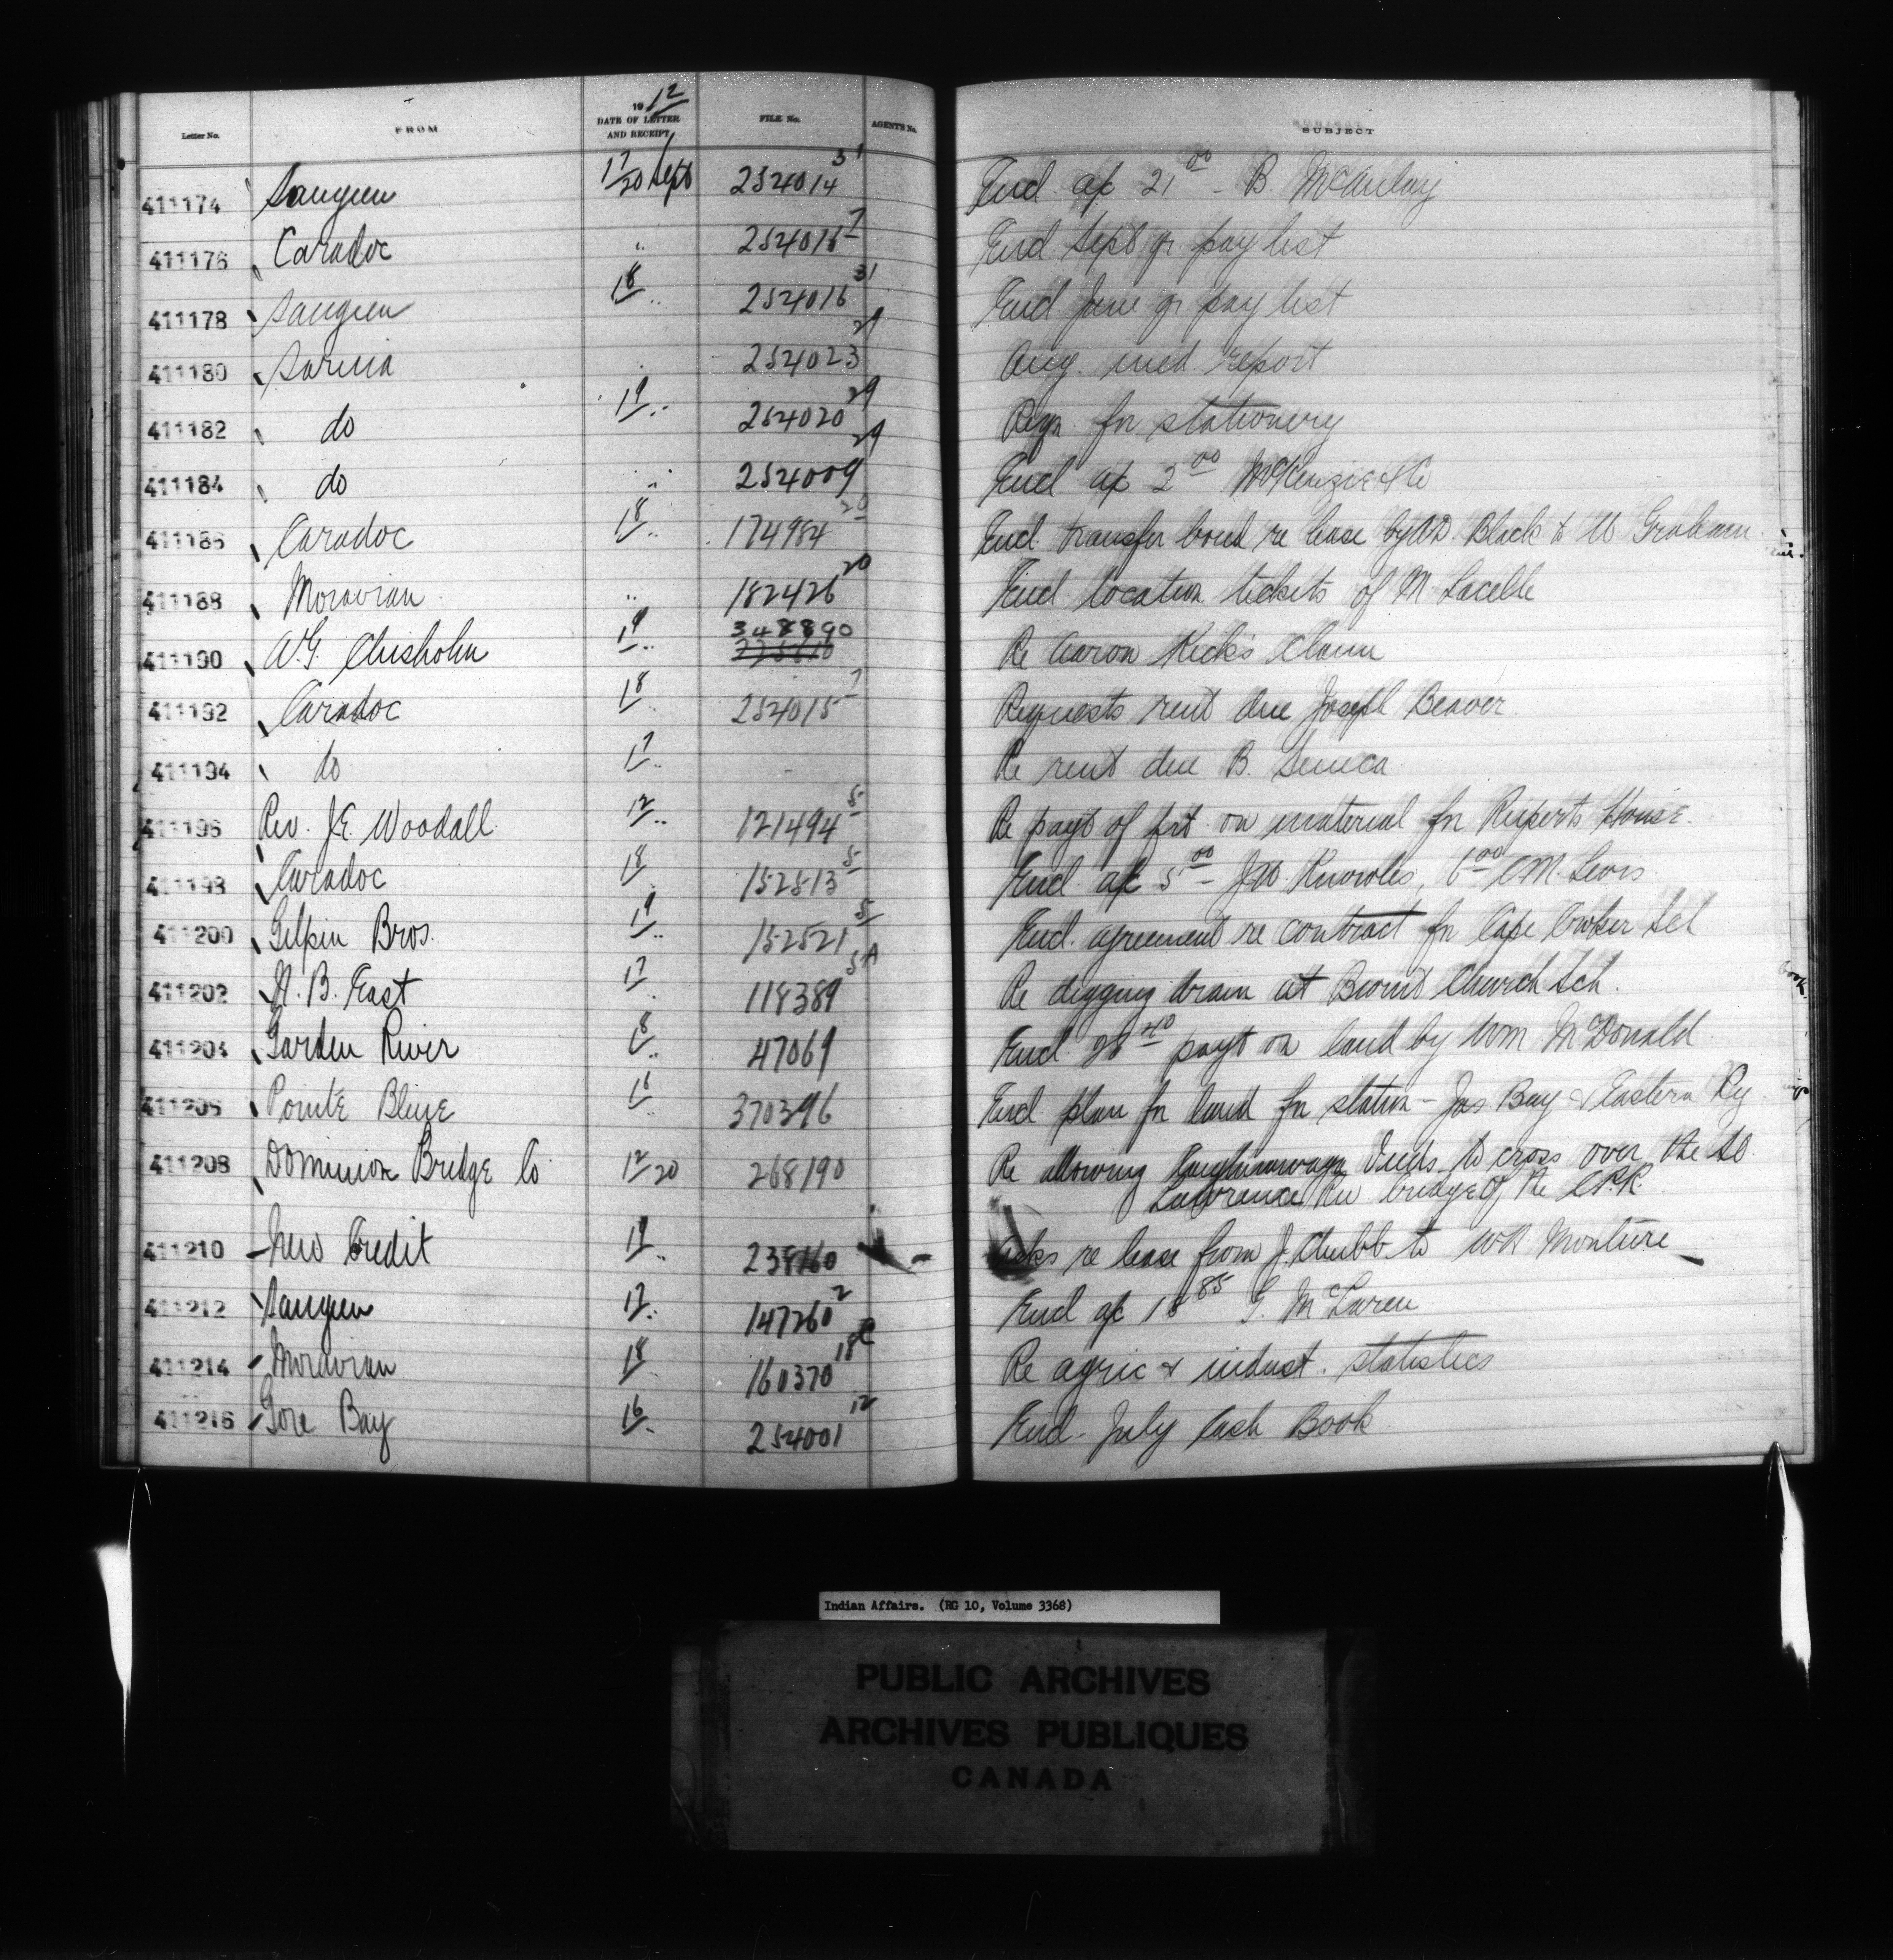 Letter No. FROM 1912 DATE OF LETTER AND RECEIPT FILE No. AGENT'S No. SUBJECT
411174 Saugeen 17/20 Sept 254014 31 Encl. a/c 21 00 - B. McAulay
411176 Caradoc " 254015 7 Encl Sept qr pay list
411178 Saugeen 18 " 254016 31 Encl. June qr pay list
411180 Sarnia 254023 29 Aug. med report
411182 do 19 " 254020 29 Reqn. for stationery
411184 do " 254009 29 Encl a/c 2 00 McKenzie & Co
411186 Caradoc 18 " 174984 20 Encl. transfer bond re lease by Black to Graham
411188 Moravian " 182426 20 Encl. location tickets of M. Lacelle
411190 A.G. Chisholm 19 " 348890 Re Aaron Kick's claim
411192 Caradoc 18 " 254015 7 Requests rent due Joseph Beaver.
411194 do 17 " Re rent due B. Seneca
411196 Rev. J.E. Woodall 12 " 121494 5 Re payt of frt. on material for Ruperts House.
411198 Caradoc 18 152513 5 Encl. a/c 5 00 - J.W. Knowles, 6 00 C.M. Lewis.
411200 Gilpin Bros. 19 " 152521 5 Encl. agreement re contract for Cape Croker Scl
411202 N. B. East 17 118389 5A Re digging drain at Burnt Church Sch.
411204 Garden River 18 " 47069 Encl. 28 40 payt on land by Wm McDonald
411206 Pointe Bleue 18 370396 Encl. plan for land for station - Jas Bay & Eastern Ry
411208 Dominion Bridge Co 12/20 268190 Re allowing Caughnawaga Inds. to cross over the St.
Lawrence Riv bridge of the C.P.R.
411210 New Credit 19 " 238160 Asks re lease from J. Chubb to W.R. Monture
411212 Saugeen 17 147260 2 Encl a/c 18 85 G. McLaren
411214 Moravian 18 160370 18 Re agric & indust. statistics
411216 Gore Bay 16 254001 12 Encl. July Cash Book
Indian Affairs. (RG 10, Volume 3368)
PUBLIC ARCHIVES
ARCHIVES PUBLIQUES
CANADA